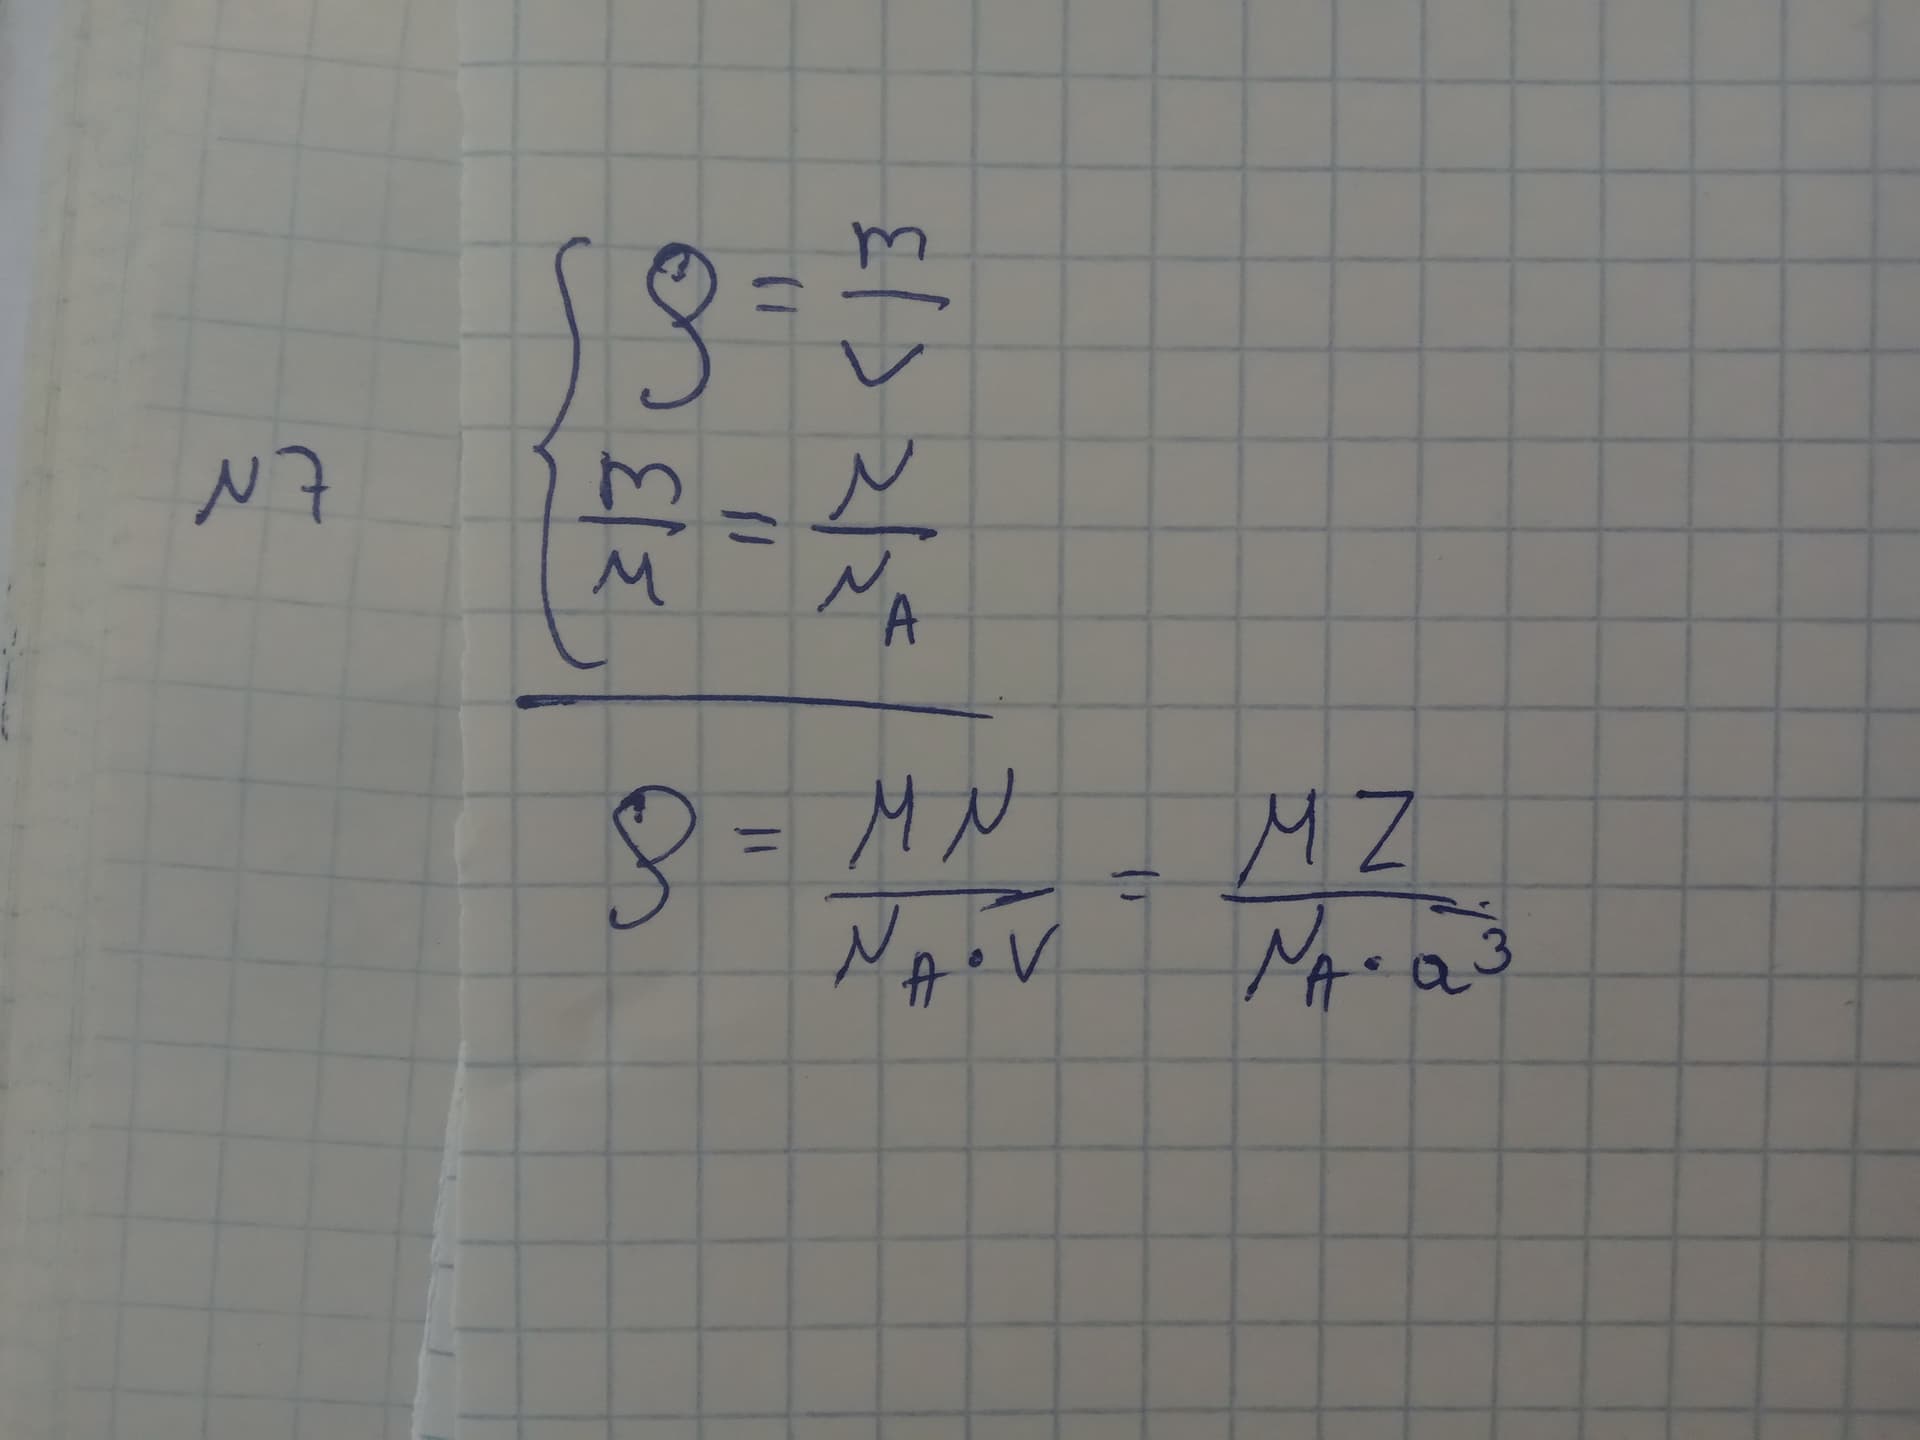 N7
ρ = m/V
m/M = N/N_A
ρ = MN/(N_A · V) = MZ/(N_A · a³)